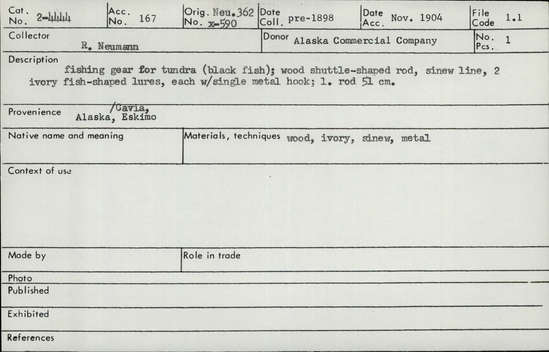 Cat. No. 2-4444 Acc. No. 167 Orig. No. Neu.362 x-590 Date Coll. pre-1898 Date Acc. Nov. 1904 File Code 1.1
Collector R. Neumann Donor Alaska Commercial Company No. Pcs. 1
Description
fishing gear for tundra (black fish); wood shuttle-shaped rod, sinew line, 2
ivory fish-shaped lures, each w/single metal hook; l. rod 51 cm.
Provenience /Gavia,
Alaska, Eskimo
Native name and meaning Materials, techniques wood, ivory, sinew, metal
Context of use
Made by Role in trade
Photo
Published
Exhibited
References